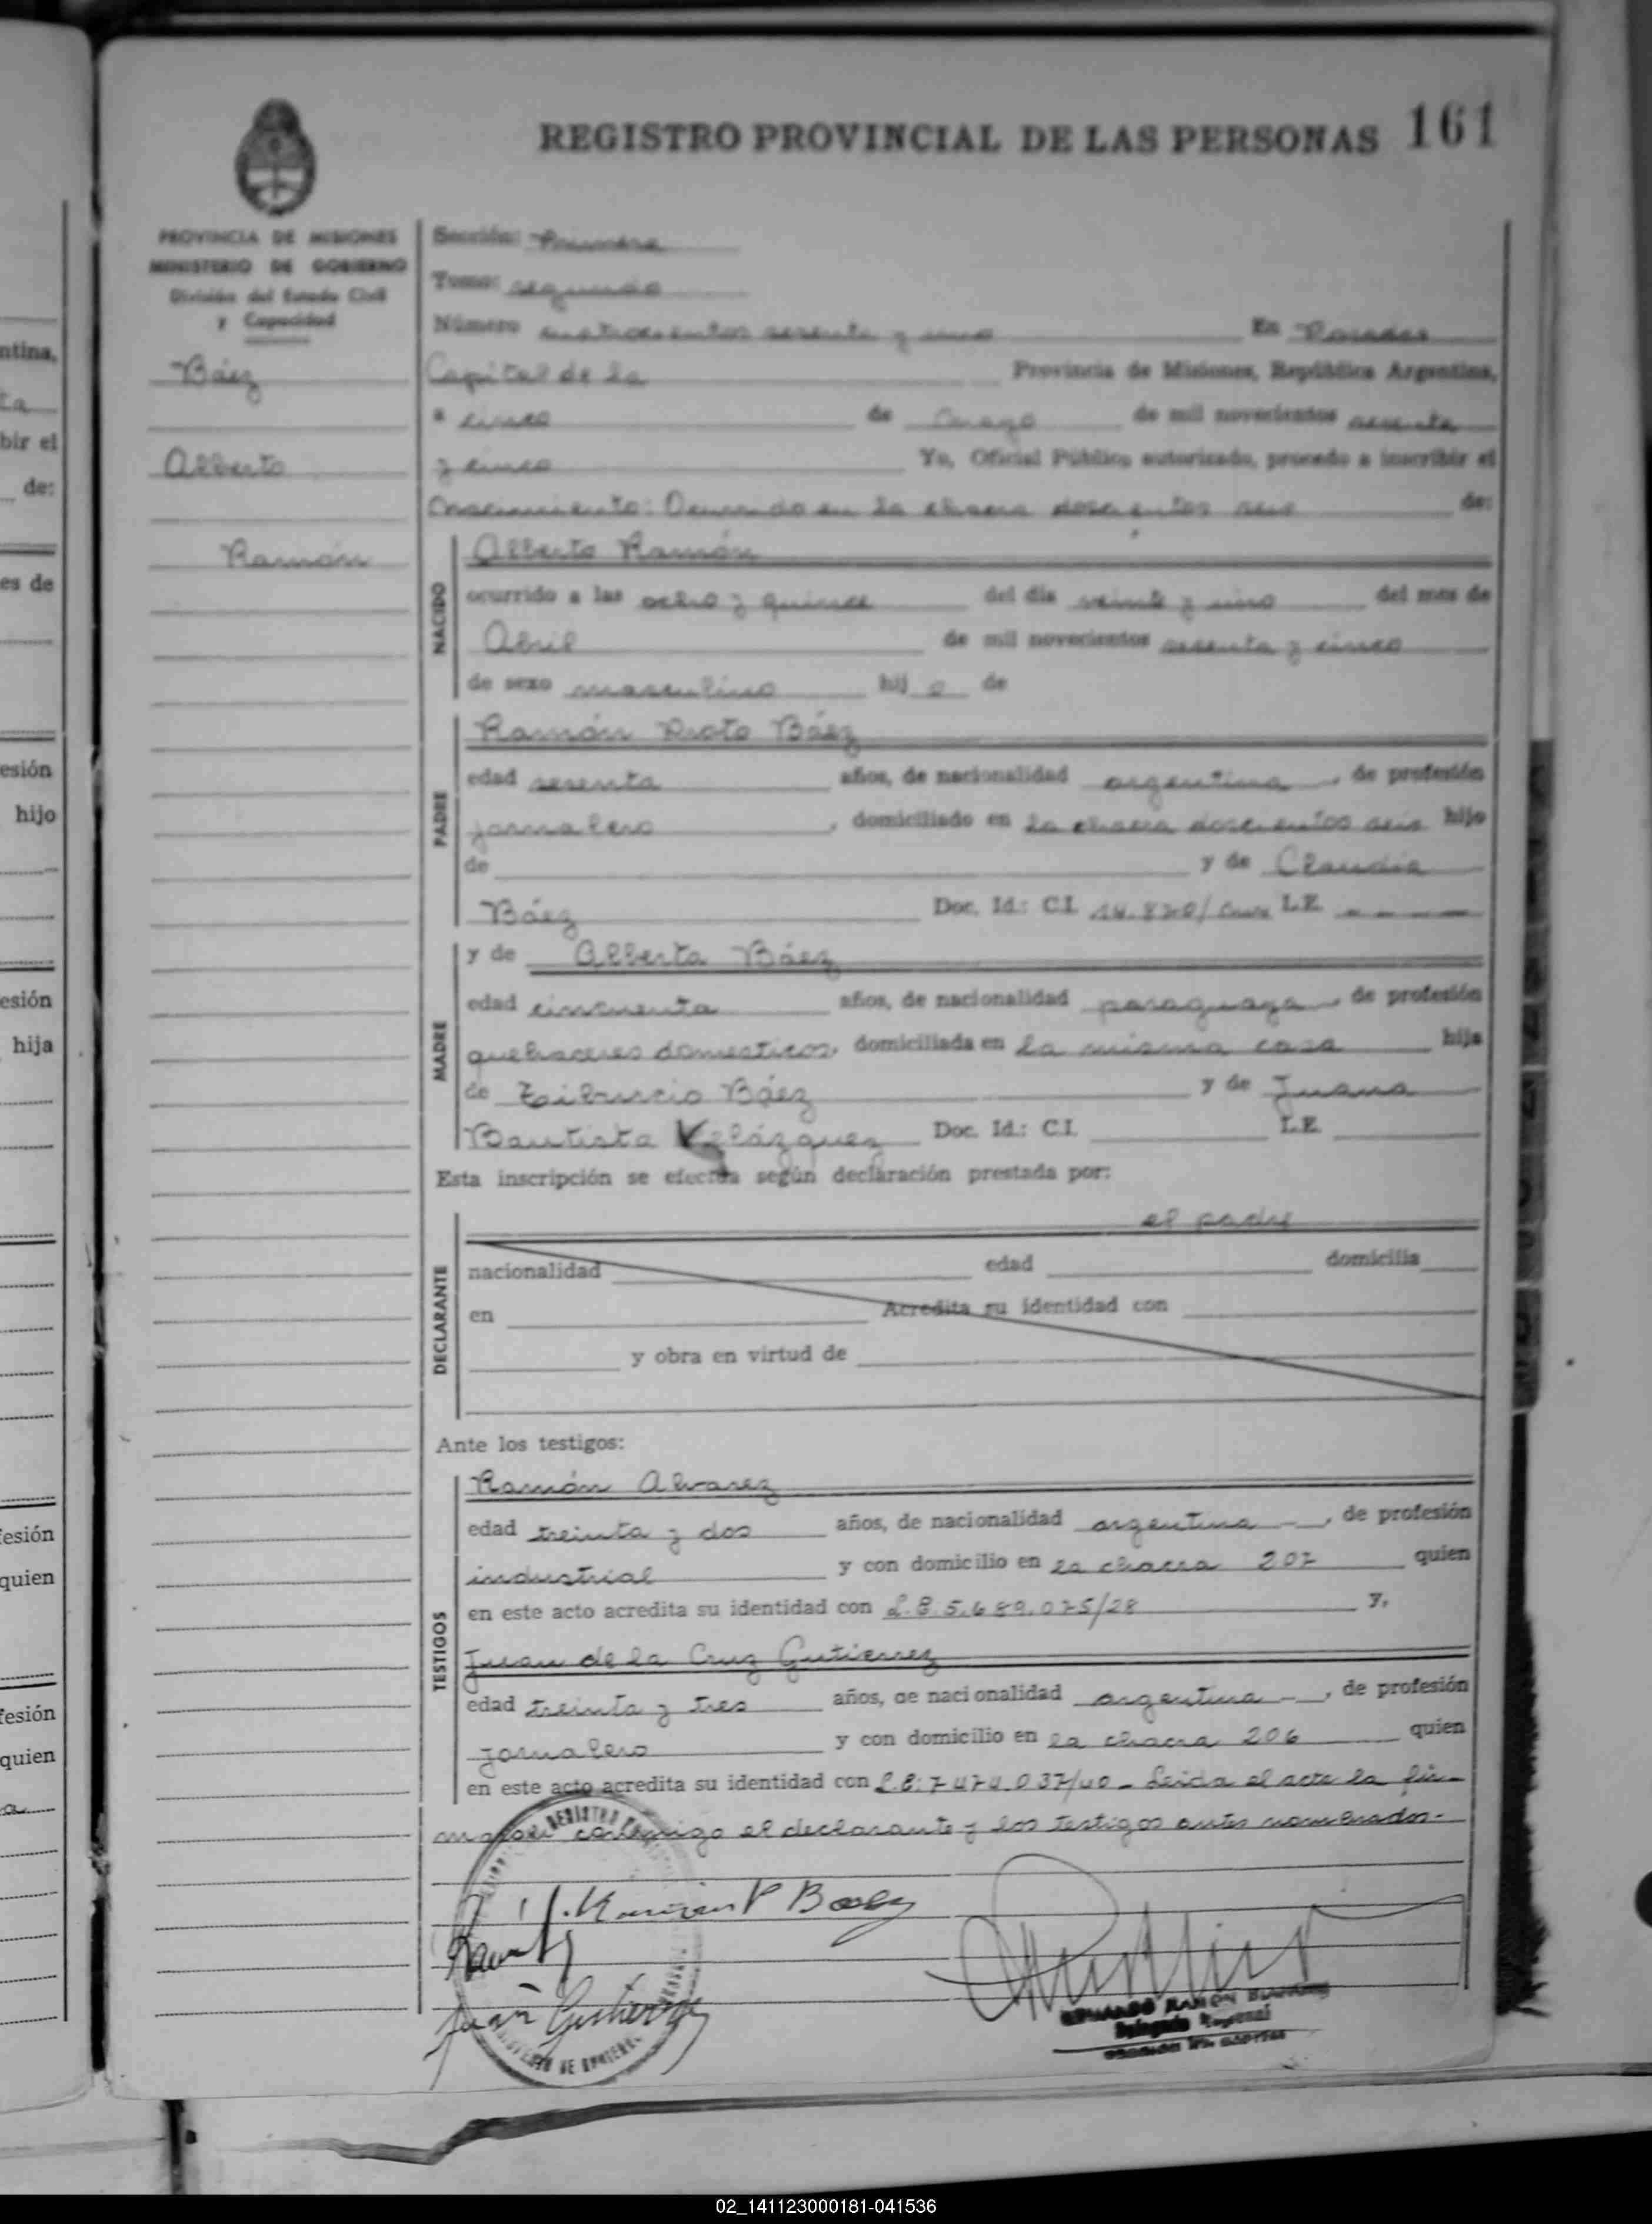 REGISTRO PROVINCIAL DE LAS PERSONAS 161
PROVINCIA DE MISIONES
MINISTERIO DE GOBIERNO
División del Estado Civil
y Capacidad
Báez
Alberto
Ramón
Sección: Primera
Tomo: segundo
Número cuatrocientos sesenta y uno En Posadas
Capital de la Provincia de Misiones, República Argentina,
a cinco de mayo de mil novecientos sesenta
y cinco Yo, Oficial Público autorizado, procedo a inscribir el
nacimiento: Ocurrido en la chacra doscientos seis de:
NACIDO
Alberto Ramón
ocurrido a las ocho y quince del día veinte y uno del mes de
Abril de mil novecientos sesenta y cinco
de sexo masculino hij o de
PADRE
Ramón Báez
edad sesenta años, de nacionalidad argentina, de profesión
jornalero, domiciliado en la chacra doscientos seis hijo
de y de Claudia
Báez Doc. Id.: C.I. L.E. - - - -
MADRE
y de Alberta Báez
edad cincuenta años, de nacionalidad paraguaya, de profesión
quehaceres domesticos, domiciliada en la misma casa hija
de Báez y de Juana
Bautista Velázquez Doc. Id.: C.I. L.E.
Esta inscripción se efectúa según declaración prestada por:
DECLARANTE
el padre
nacionalidad edad domicilia
en Acredita su identidad con
y obra en virtud de
Ante los testigos:
TESTIGOS
Ramón Alvarez
edad treinta y dos años, de nacionalidad argentina -, de profesión
industrial y con domicilio en la chacra 207 quien
en este acto acredita su identidad con L.E: 5.689.075/28 y,
Juan de la Cruz Gutierrez
edad treinta y tres años, de nacionalidad argentina -, de profesión
jornalero y con domicilio en la chacra 206 quien
en este acto acredita su identidad con L.E: 7474.037/40 - Leida el acta la fir-
man conmigo el declarante y los testigos antes nombrados.-
Ramon P Baez
Juan Gutierrez
02_141123000181-041536